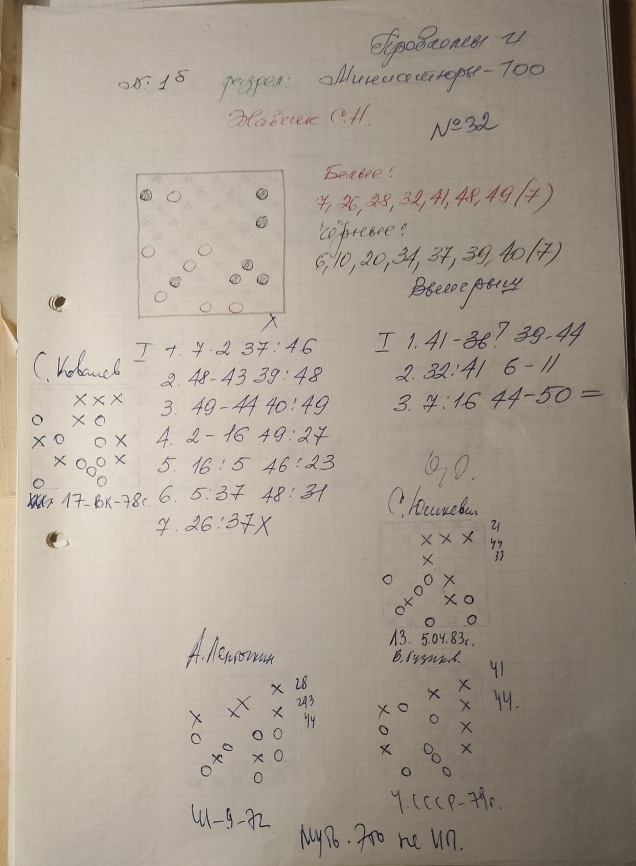 Проблемы и
№ 1б раздел: Миниатюры-100
Жавнек С.Н.
№32
Белые:
7, 26, 28, 32, 41, 48, 49 (7)
Чёрные:
6, 10, 20, 34, 37, 39, 40 (7)
Выигрыш
X
I 1. 7-2 37:46
2. 48-43 39:48
3. 49-44 40:49
4. 2-16 49:27
5. 16:5 46:23
6. 5:37 48:31
7. 26:37X
I 1. 41-36? 39-44
2. 32:41 6-11
3. 7:16 44-50 =
С. Ковалев
17-ВК-78г.
С. Юшкевич
21
44
33
13. 5.04.83г.
28
44
В. Гузиков.
41
44.
Ш-9-72
Ч.СССР-79г.
Муть. Это не ИП.